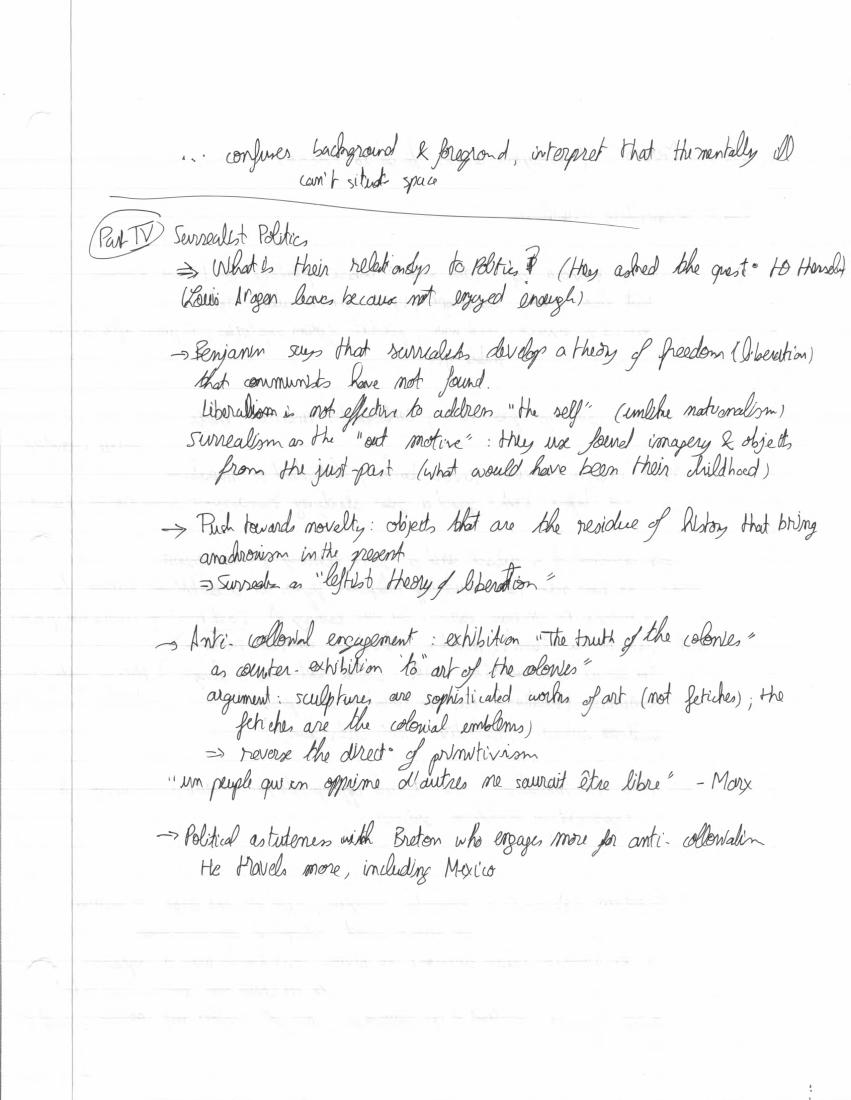 ... confuses background & foregrond, interpret that the mentally ill
can't situate space
Part IV Surrealist Politics
⇒ What is their relationships to Politics? (they asked the quest° to themself)
(Louis Aragon leaves because not engaged enough)
→ Benjamin says that surrealists develop a theory of freedom (liberation)
that communists have not found.
Liberalism is not effective to address "the self" (unlike nationalism)
surrealism as the "out motive" : they use found imagery & objects
from the just-past (what would have been their childhood)
→ Push towards novelty : objects that are the residue of history that bring
anachronism in the present
⇒ Surrealism as "leftist theory of liberation"
→ Anti-collonial engagement : exhibition "The truth of the colonies"
as counter-exhibition to "art of the colonies"
argument : sculptures are sophisticated works of art (not fetiches) ; the
fetiches are the colonial emblems)
⇒ reverse the direct° of primitivism
"un peuple qui en opprime d'autres ne saurait être libre" - Marx
→ Political astuteness with Breton who engages more for anti-collonialism
He travels more, including Mexico